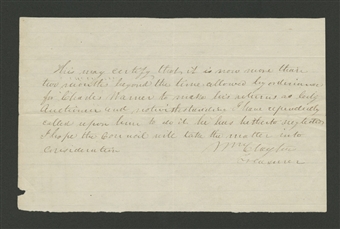 This may certify, that it is now more than
two months beyond the time allowed by ordinance
for Charles Warner to make his returns as City
Auctioneer and notwithstanding I have repeatedly
called upon him to do it he has hitherto neglected
I hope the Council will take the matter into
consideration
Wm Clayton
Treasurer